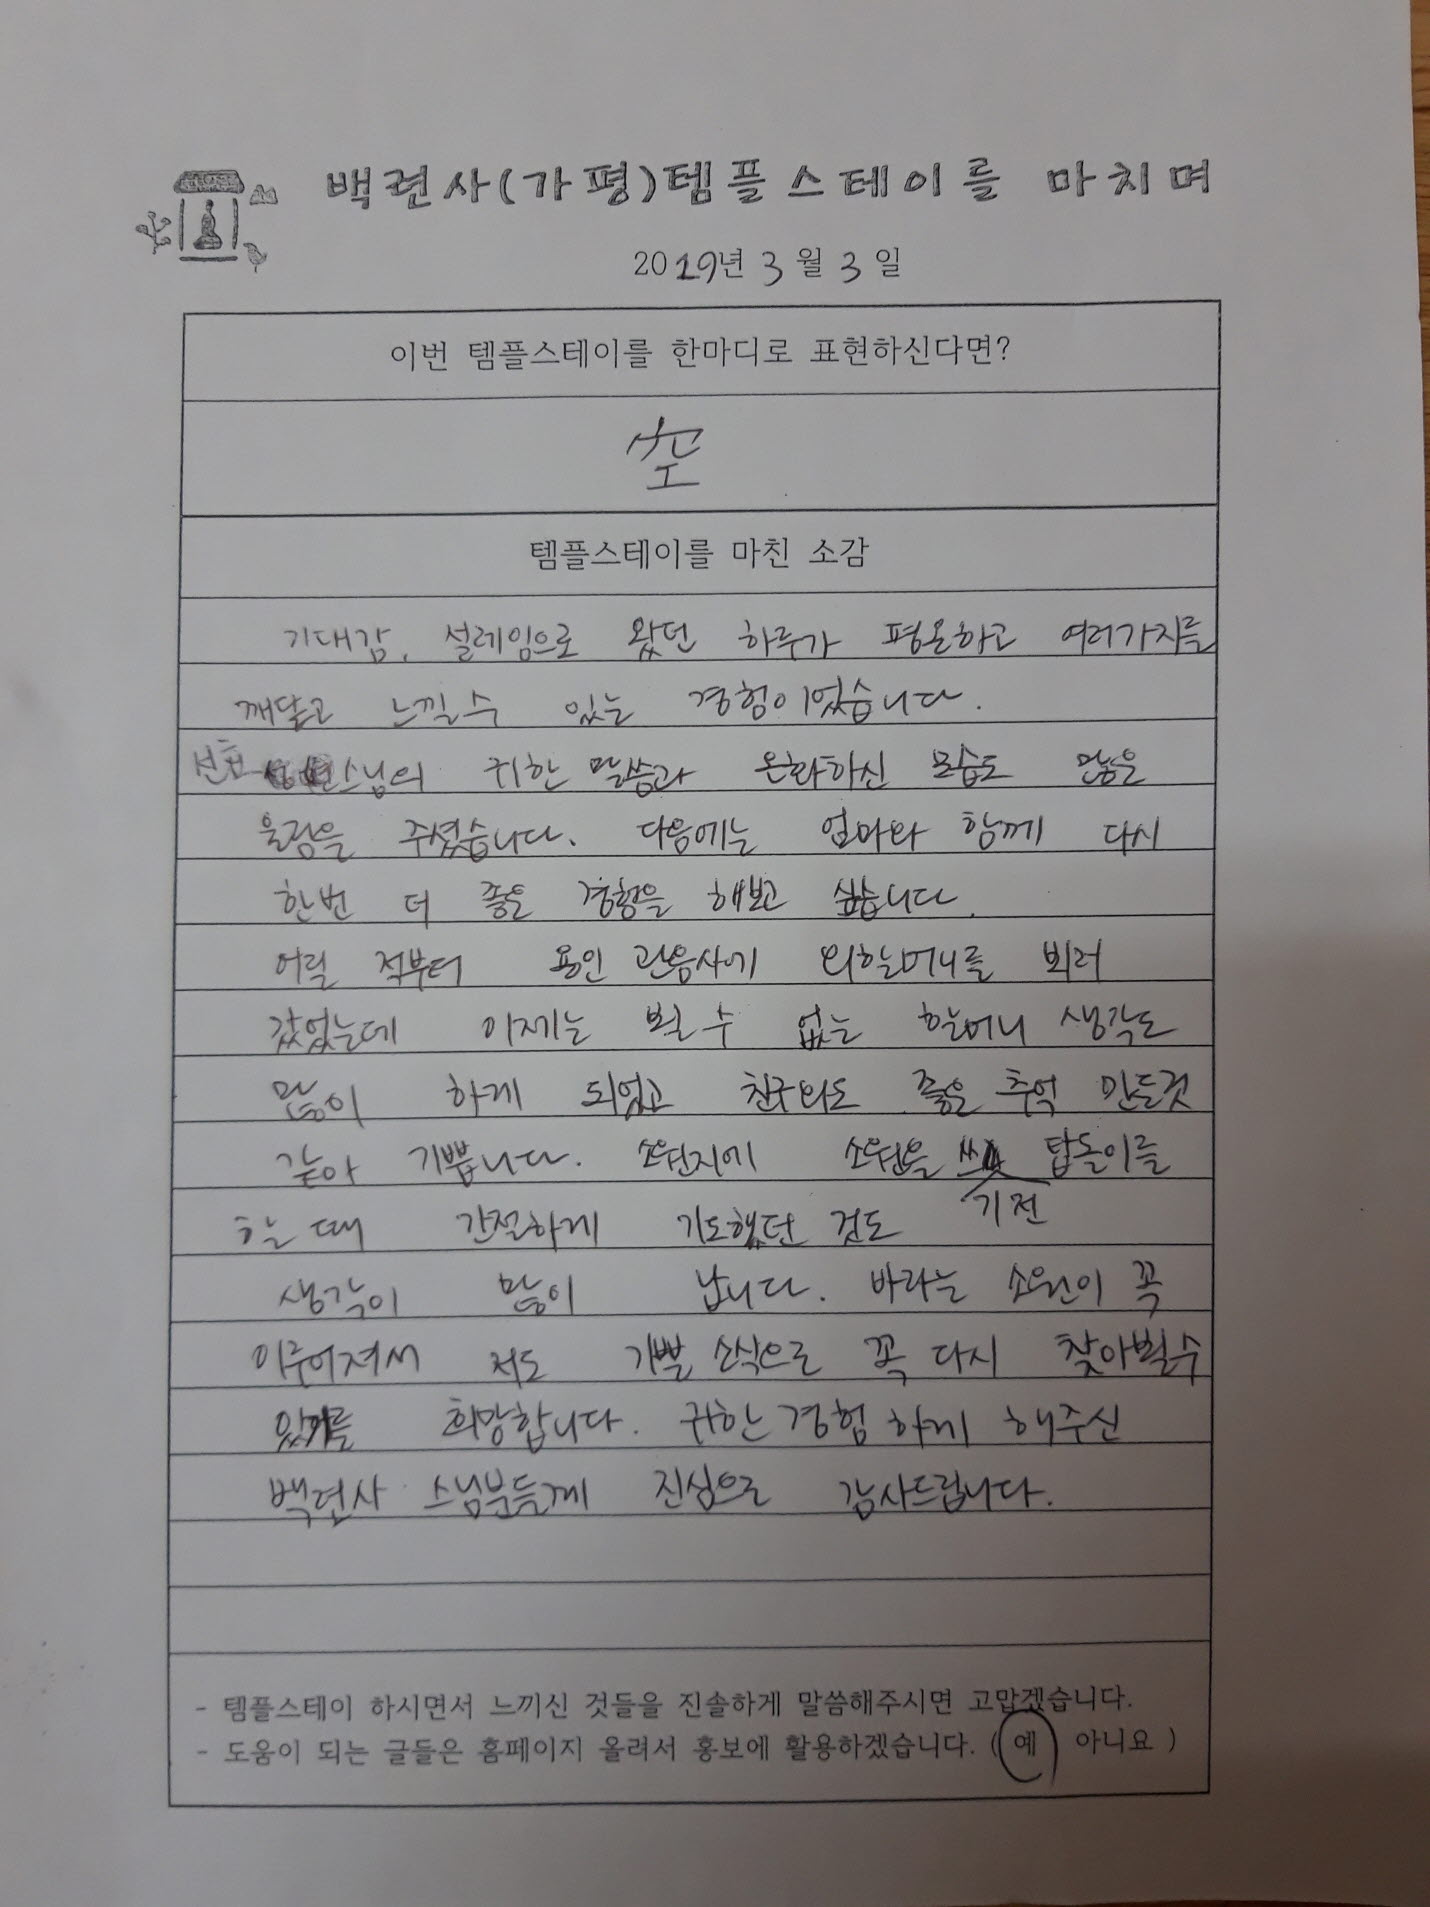 백련사(가평)템플스테이를 마치며
2019년 3월 3일
이번 템플스테이를 한마디로 표현하신다면?
空
템플스테이를 마친 소감
기대감, 설레임으로 왔던 하루가 평온하고 여러가지를
깨달고 느낄수 있는 경험이었습니다.
스님의 귀한 말씀과 온화하신 모습도 많은
울림을 주셨습니다. 다음에는 엄마와 함께 다시
한번 더 좋은 경험을 해보고 싶습니다.
어릴 적부터 용인 관음사에 외할머니를 뵈러
갔었는데 이제는 뵐 수 없는 할머니 생각도
많이 하게 되었고 친구와도 좋은 추억 만든것
같아 기쁩니다. 소원지에 소원을 쓰기전 탑돌이를
하는 때 간절하게 기도했던 것도
생각이 많이 납니다. 바라는 소원이 꼭
이루어져서 저도 기쁠 소식으로 꼭 다시 찾아뵐수
있기를 희망합니다. 귀한 경험 하게 해주신
백련사 스님분들께 진심으로 감사드립니다.
- 템플스테이 하시면서 느끼신 것들을 진솔하게 말씀해주시면 고맙겠습니다.
- 도움이 되는 글들은 홈페이지 올려서 홍보에 활용하겠습니다. ( 예 아니요 )